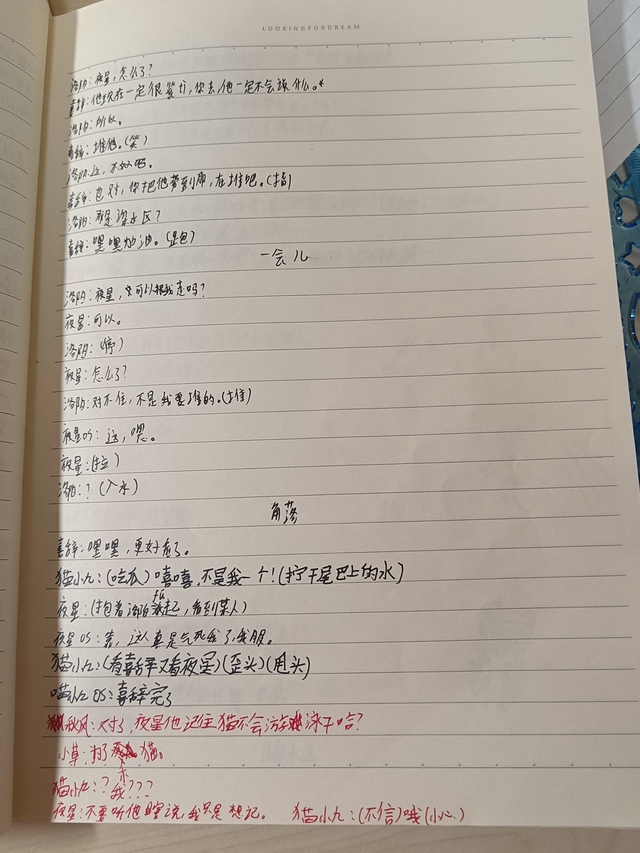 LOOKINGFORDREAM
洛陌:夜星,怎么了?
喜辞:他现在一定很紧力,你去他一定不会说什么。*
洛陌:所以。
喜辞:推他。(笑)
洛陌:这,不好吧。
喜辞:也对,你把他带到那,在推吧。(指)
洛陌:那是深水区?
喜辞:嘿嘿加油。
一会儿
洛陌:夜星,可以跟我走吗?
夜星:可以。
洛陌:(停)
夜星:怎么了?
洛陌:对不住,不是我要推的。(推)
夜星os:这,嘿。
夜星:(拉)
洛陌:?(入水)
角落
喜辞:嘿嘿,更好看了。
猫小九:(吃瓜)嘻嘻,不是我一个!(拧干尾巴上的水)
夜星:(抱着洛陌起,看到某人)
夜星OS:靠,这人真是气死我了,我服。
猫小九:(看喜辞又看夜星)(歪头)(甩头)
喵小九OS:喜辞完了
秋风:对了,夜星他记住猫不会游泳干哈?
小草:为了猫。
猫小九:??我???
夜星:不要听他瞎说,我只是想记。 猫小九:(不信)哦(小心)